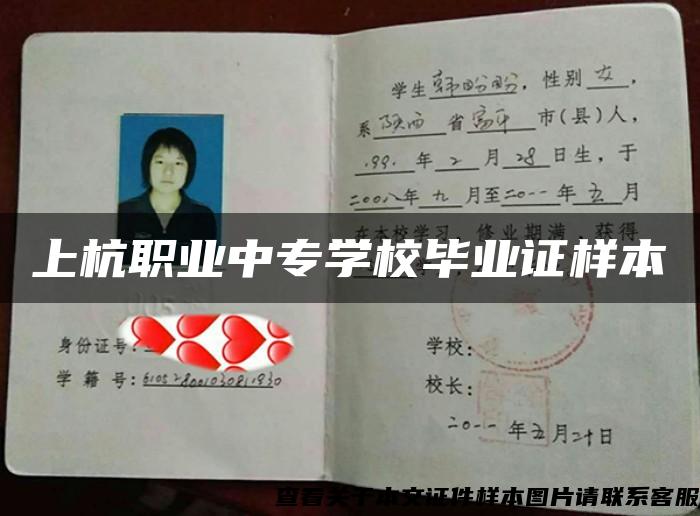 学生韩盼盼,性别女,
系陕西省富平市(县)人,
1991年2月28日生,于
二00八年九月至二0一一年五月
在本校学习,修业期满,获得
上杭职业中专学校毕业证样本
身份证号:
学籍号:610528001030811930
学校:
校长:
二0一一年五月二十日
查看关于本文证件样本图片请联系客服